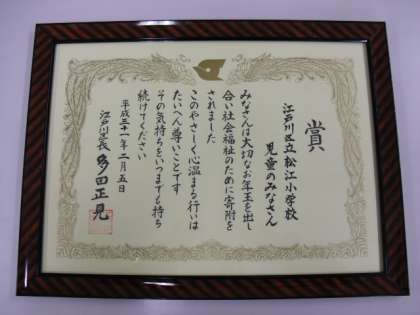 賞
江戸川区立松江小学校
児童のみなさん
みなさんは大切なお年玉を出し
合い社会福祉のために寄附を
されました
このやさしく心温まる行いは
たいへん尊いことです
その気持ちをいつまでも持ち
続けてください
平成三十一年二月五日
江戸川区長 多田正見